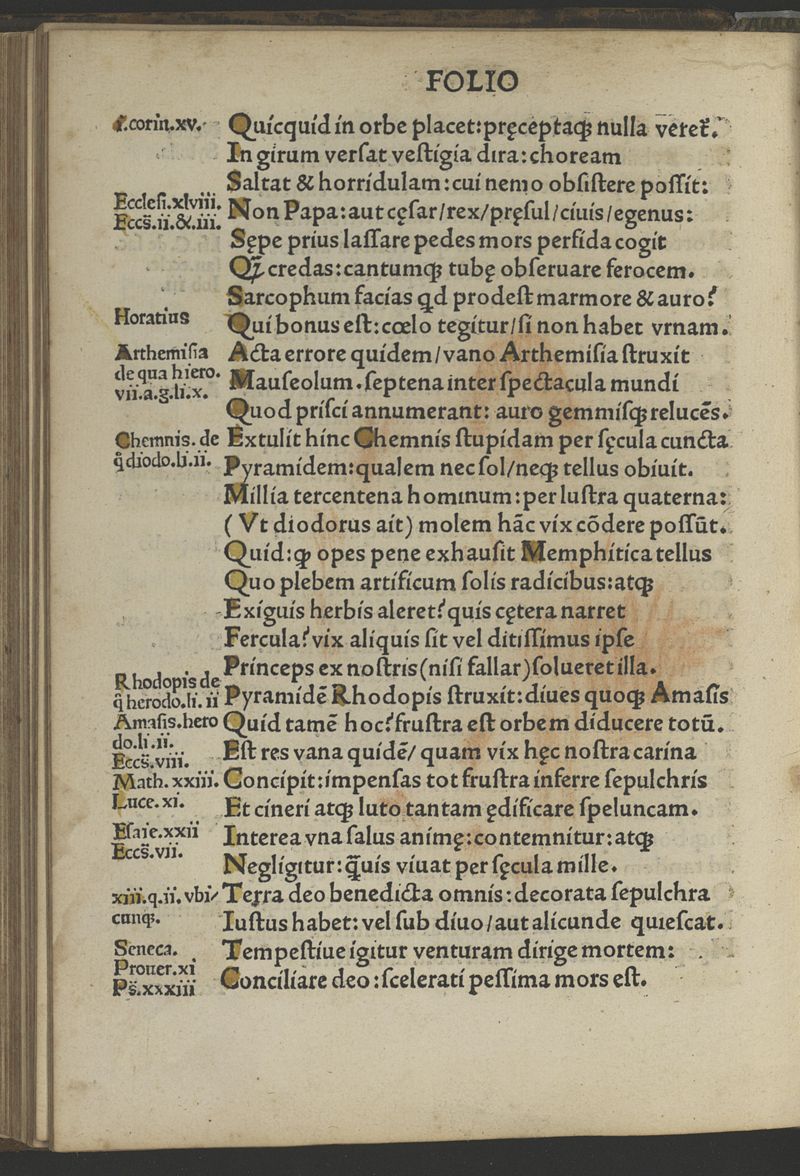 FOLIO
I.corin.xv.
Quicquid in orbe placet:pręceptaqꝫ nulla veret᷑.
In girum verſat veſtigia dira:choream
Saltat & horridulam:cui nemo obſiſtere poſſit:
Eccleſi.xlviii.
Non Papa:aut cęſar/rex/pręſul/ciuis/egenus:
Eccs̄.ii.&.iii.
Sępe prius laſſare pedes mors perfida cogit
Qꝫ̄ credas:cantumqꝫ tubę obſeruare ferocem.
Sarcophum facias qd prodeſt marmore & auro?
Horatius
Qui bonus eſt:cœlo tegitur/ſi non habet vrnam.
Arthemiſia
Acta errore quidem/vano Arthemiſia ſtruxit
de qua hiero.
Mauſeolum.ſeptena inter ſpectacula mundi
vii.a.g.li.x.
Quod priſci annumerant: auro gemmiſqꝫ relucēs.
Chemnis.de
Extulit hinc Chemnis ſtupidam per ſęcula cuncta
q̄ diodo.li.ii.
Pyramidem:qualem nec ſol/neqꝫ tellus obiuit.
Millia tercentena hominum:per luſtra quaterna:
(Vt diodorus ait) molem hāc vix cōdere poſſūt.
Quid:qꝫ opes pene exhauſit Memphitica tellus
Quo plebem artificum ſolis radicibus:atqꝫ
Exiguis herbis aleret?quis cętera narret
Fercula?vix aliquis ſit vel ditiſſimus ipſe
Princeps ex noſtris(niſi fallar)ſolueret illa.
Rhodopis de
q̄ herodo.li.ii
Pyramidē Rhodopis ſtruxit:diues quoqꝫ Amaſis
Amaſis.hero
Quid tamē hoc?fruſtra eſt orbem diducere totū.
do.li.ii.
Eccs̄.viii.
Eſt res vana quidē/ quam vix hęc noſtra carina
Math.xxiii.
Concipit:impenſas tot fruſtra inferre ſepulchris
Luce.xi.
Et cineri atqꝫ luto tantam ędificare ſpeluncam.
Eſaie.xxii
Interea vna ſalus animę:contemnitur:atqꝫ
Eccs̄.vii.
Negligitur:q̄uis viuat per ſęcula mille.
xiii.q.ii.vbi/
Terra deo benedicta omnis:decorata ſepulchra
cunqꝫ.
Iuſtus habet:vel ſub diuo/aut alicunde quieſcat.
Seneca.
Tempeſtiue igitur venturam dirige mortem:
Prouer.xi
Ps̄.xxxiii
Conciliare deo:ſcelerati peſſima mors eſt.